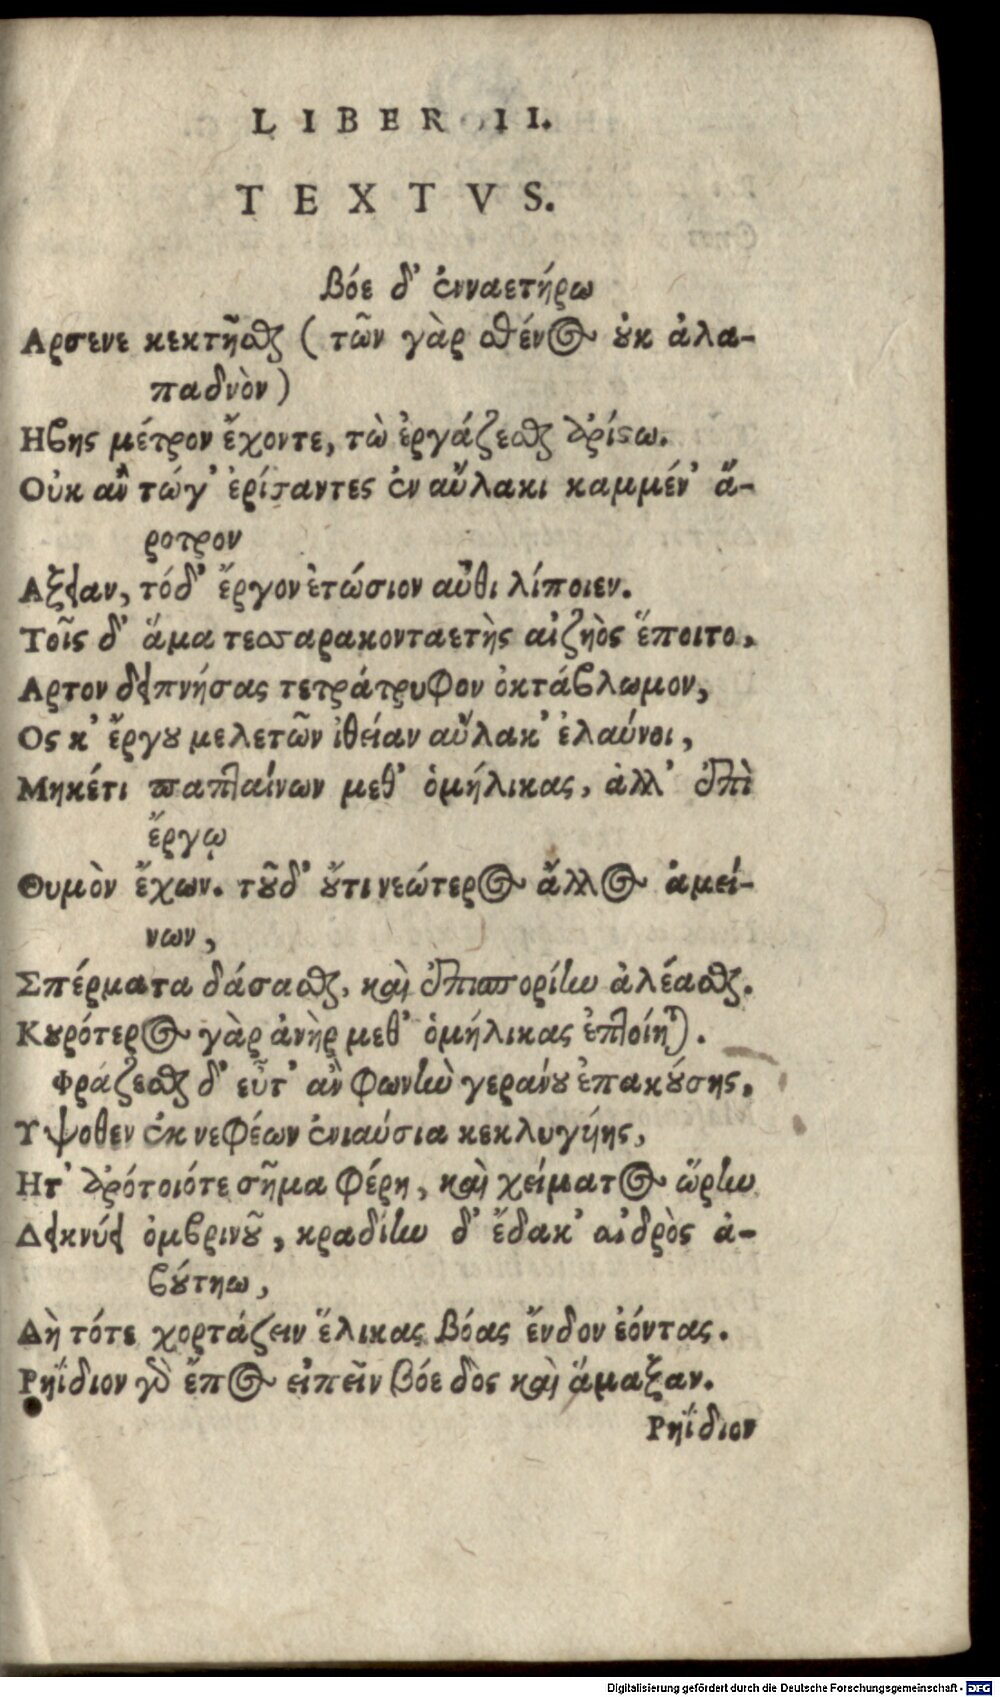 LIBER II.
TEXTVS.
Βόε δ' ἐνναετήρω
Αρσενε κεκτῆσθαι (τῶν γὰρ σθένος οὐκ ἀλα-
παδνὸν)
Ηβης μέτρον ἔχοντε, τὼ ἐργάζεσθαι ἀρίστω.
Οὐκ ἂν τώγ' ἐρίσαντες ἐν αὔλακι καμμέν' ἄ-
ροτρον
Αξειαν, τόδ' ἔργον ἐτώσιον αὖθι λίποιεν.
Τοῖς δ' ἅμα τεσσαρακονταετὴς αἰζηὸς ἕποιτο,
Αρτον δειπνήσας τετράτρυφον ὀκτάβλωμον,
Ος κ' ἔργου μελετῶν ἰθείαν αὔλακ' ἐλαύνοι,
Μηκέτι παπταίνων μεθ' ὁμήλικας, ἀλλ' ἐπὶ
ἔργῳ
Θυμὸν ἔχων. τοῦδ' οὔτι νεώτερος ἄλλος ἀμεί-
νων,
Σπέρματα δάσασθαι, καὶ ἐπισπορίην ἀλέασθαι.
Κουρότερος γὰρ ἀνὴρ μεθ' ὁμήλικας ἐπτοίηται.
Φράζεσθαι δ' εὖτ' ἂν φωνὴν γεράνου ἐπακούσης,
Υψοθεν ἐκ νεφέων ἐνιαύσια κεκλυγήης,
Ητ' ἀρότοιότε σῆμα φέρη, καὶ χείματος ὥρην
Δεικνύει ὀμβρινοῦ, κραδίην δ' ἔδακ' αἰδρὸς ἀ-
βούτηω,
Δὴ τότε χορτάζειν ἕλικας βόας ἔνδον ἐόντας.
Ρηΐδιον γὰρ ἔπος εἰπεῖν βόε δὸς καὶ ἅμαξαν.
Ρηΐδιον
Digitalisierung gefördert durch die Deutsche Forschungsgemeinschaft - DFG